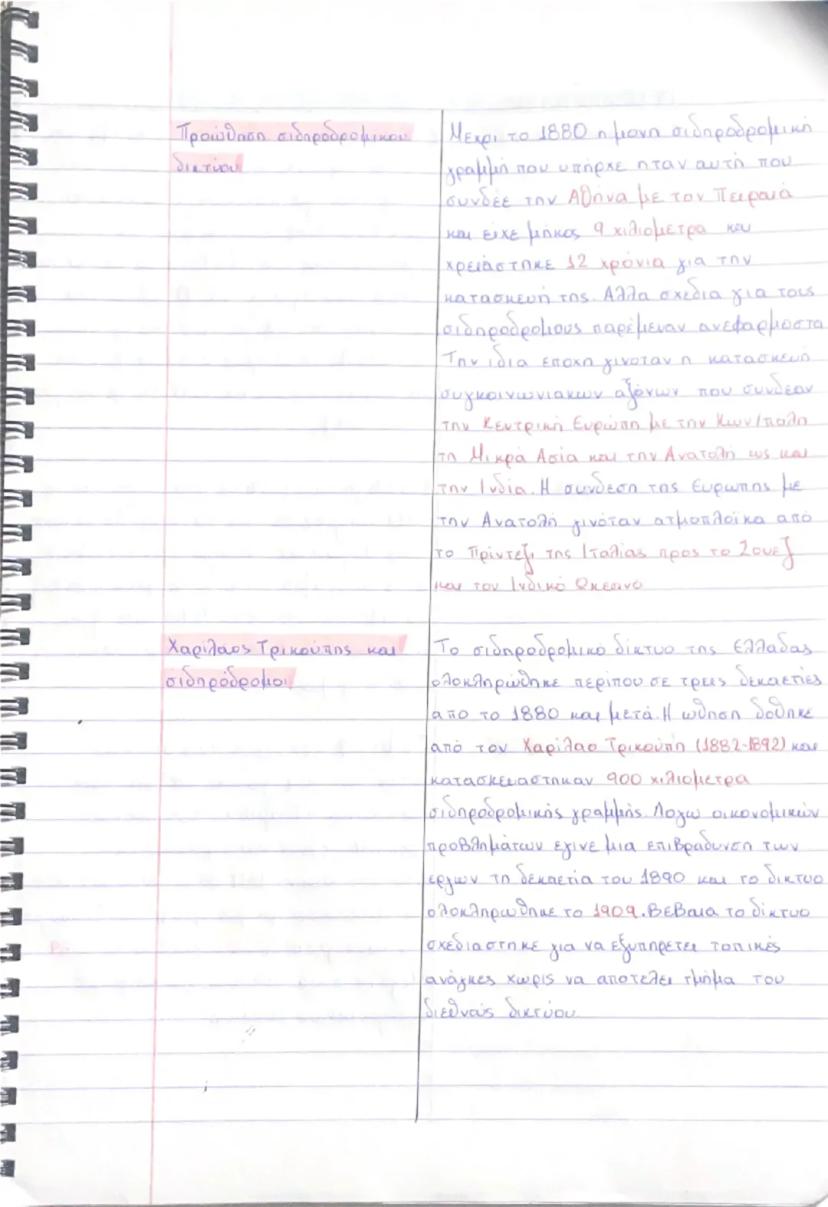 Προώθηση σιδηροδρομικου
δικτύου
Μεχρι το 1880 η μονη σιδηροδρομική
γραμμή που υπήρχε ηταν αυτή που
συνδέε την Αθήνα με τον Πειραιά
και ειχε μήκος 9 χιλιομετρα και
χρειάστηκε 12 χρόνια για την
κατασκευή της. Αλλα σχεδια για τους
σιδηροδρομους παρέμεναν ανεφαρμοστα
Την ιδια εποχη γινοταν η κατασκευη
συγκοινωνιακων αξόνων που συνδεαν
την Κεντρική Ευρώπη με την Κων/πολη
τη Μικρά Ασία και την Ανατολή ως και
την Ινδία. Η συνδεση της Ευρωπης με
την Ανατολη γινόταν ατμοπλοϊκα από
το Πρίντεζι της Ιταλίας προς το Σουεζ
και τον Ινδικό Ωκεανο
Χαρίλαος Τρικούπης και
σιδηρόδρομοι
Το σιδηροδρομικό δίκτυο της Ελλαδας
ολοκληρώθηκε περίπου σε τρεις δεκαετίες
από το 1880 και μετά. Η ωθηση δοθηκε
από τον Χαρίλαο Τρικούπη (1882-1892) και
κατασκευαστηκαν 900 χιλιομετρα
σιδηροδρομικής γραμμής. Λογω οικονομικών
προβλημάτων εγινε μια επιβραδυνση των
εργων τη δεκαετία του 1890 και το δικτυο
ολοκληρωθηκε το 1909. Βεβαια το δίκτυο
σχεδιαστηκε για να εξυπηρετει τοπικές
ανάγκες χωρις να αποτελει τμήμα του
διεθνούς δικτύου